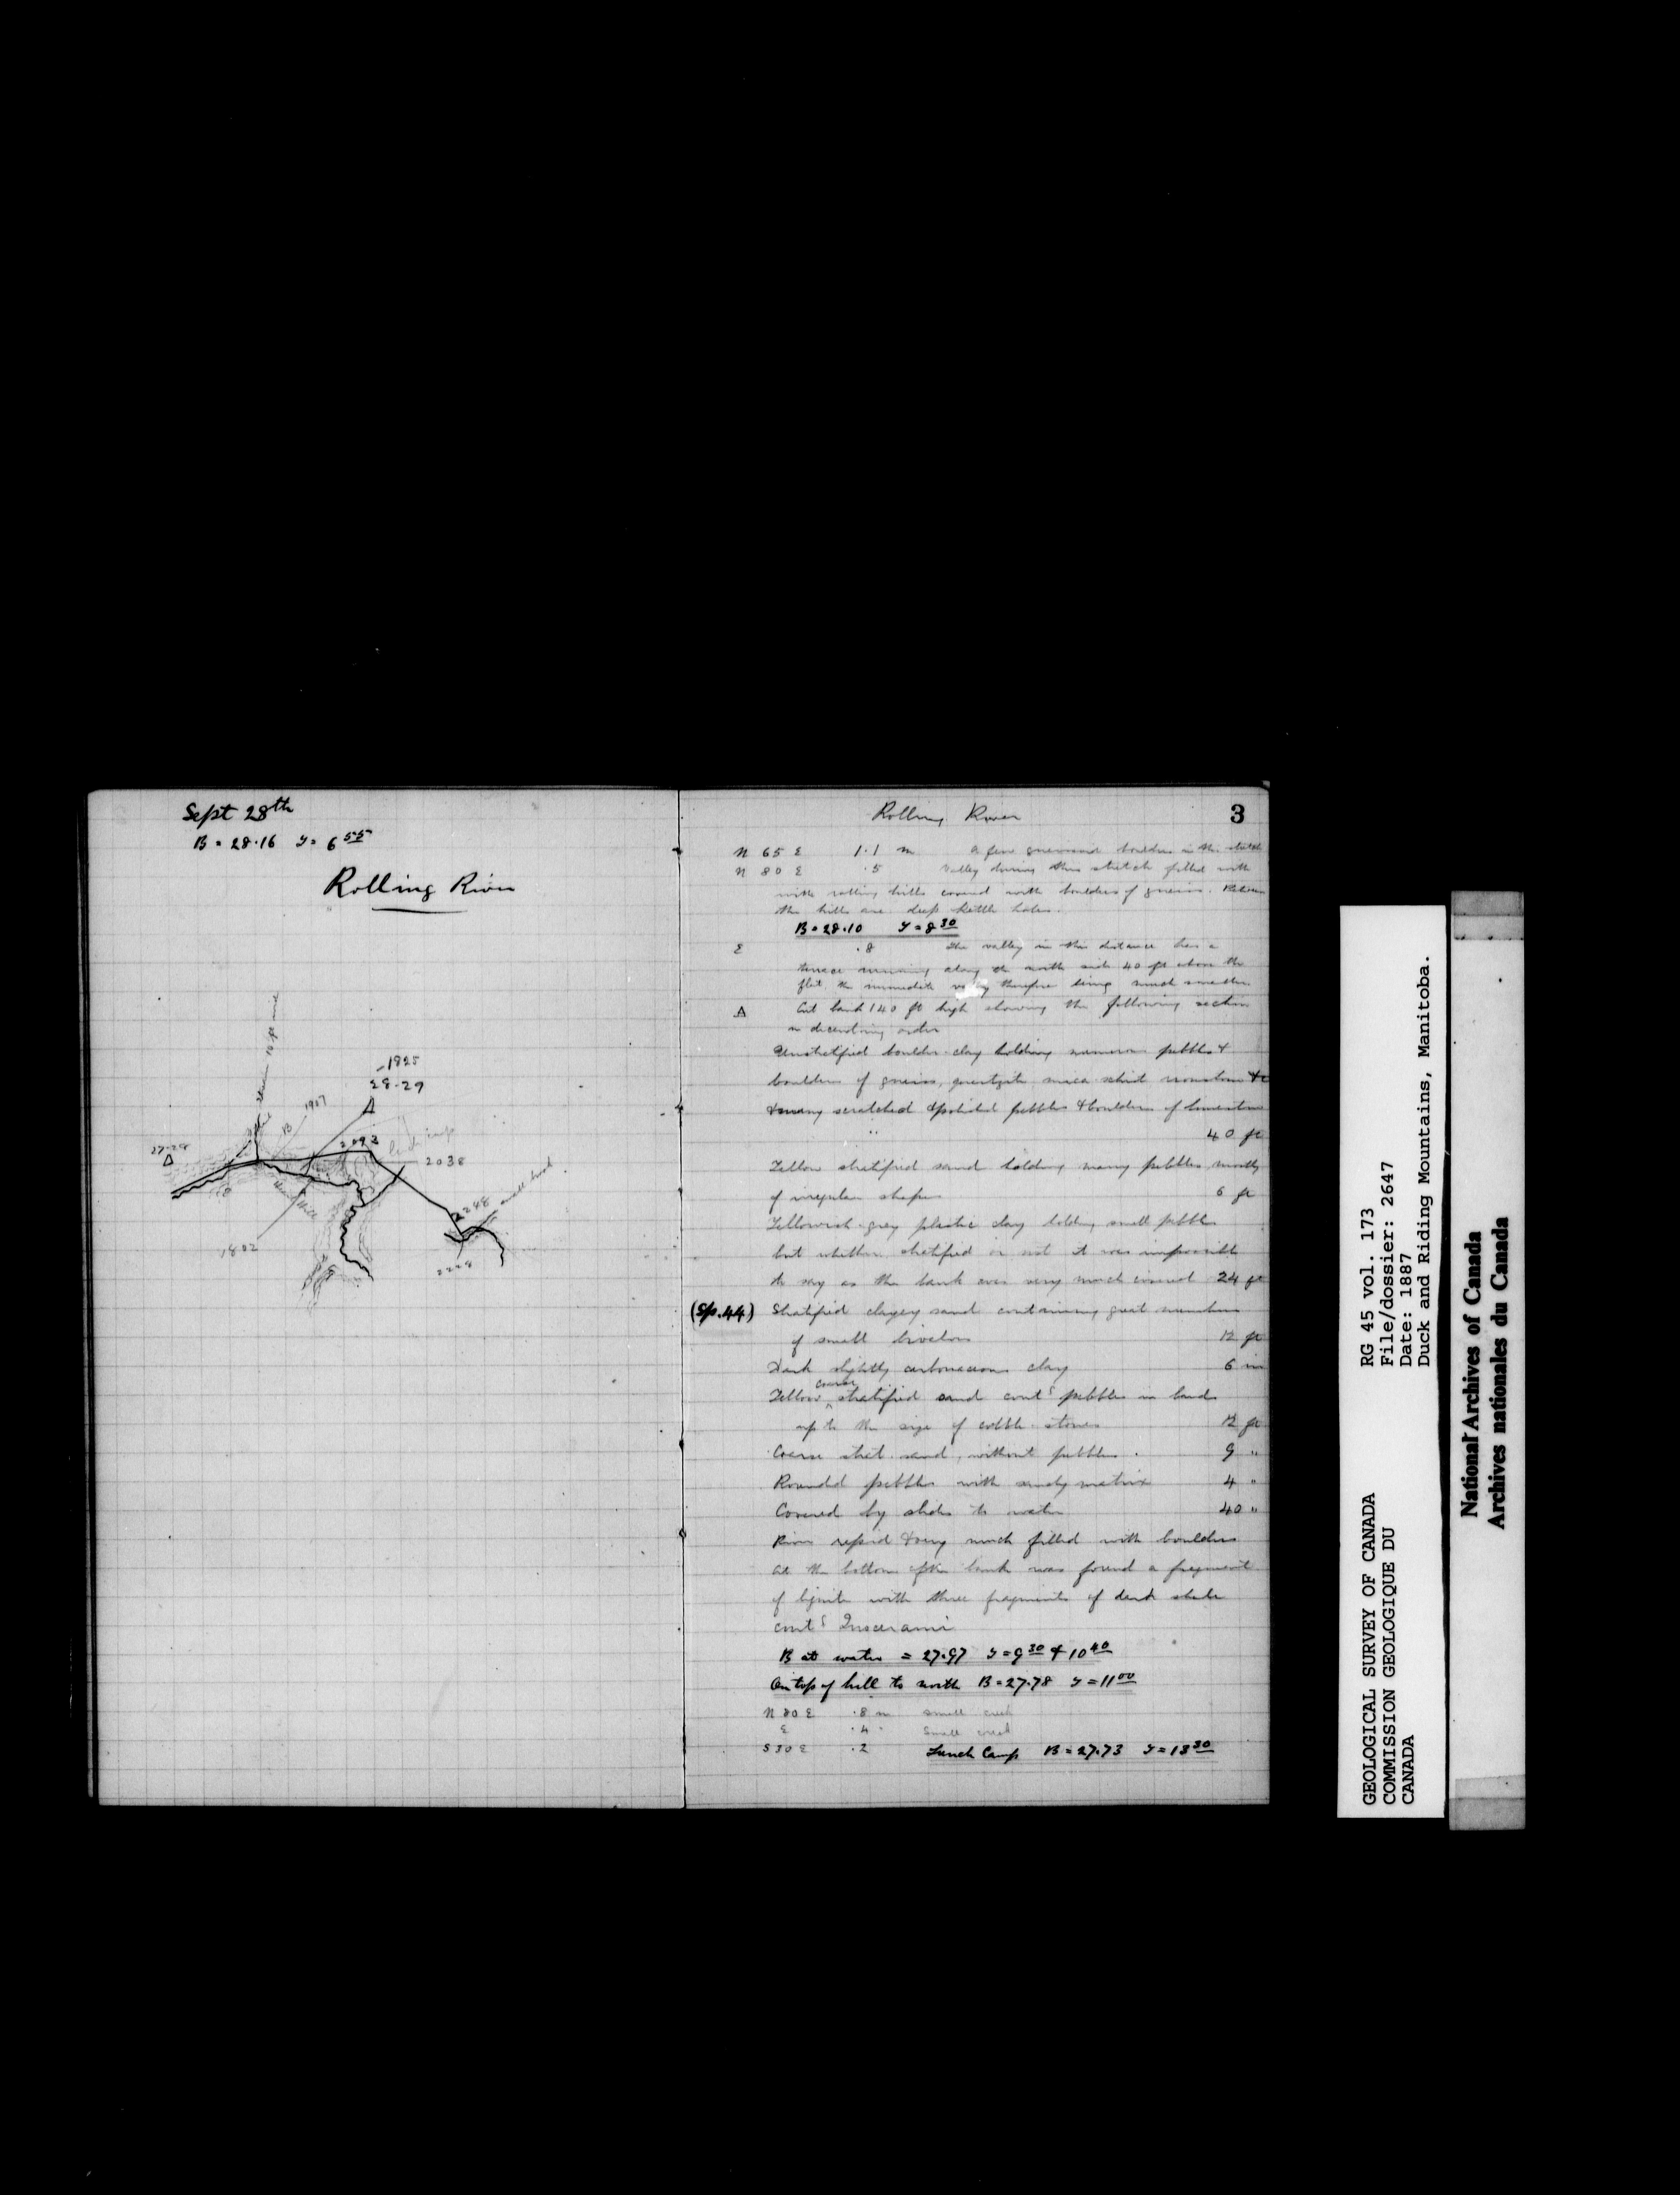 Sept 28th
B = 28.16 T = 6 55
Rolling River
1825
28.29
1907
B
2093
Lunch Camp
2038
27.28
1802
2248
small creek
2248
Rolling River
3
N 65 E 1.1 m A few gneissoid boulders in the
N 80 E .5 Valley during this stretch filled with
with rolling hills covered with boulders of gneiss. Between
the hills are deep kettle holes.
B = 28.10 T = 8 30
E .8 The valley in this distance has a
terrace running along the north side 40 ft above the
flat, the immediate valley therefore being much smaller
Δ Cut bank 140 ft high showing the following section
in descending order
Unstratified boulder-clay holding numerous pebbles &
boulders of gneiss, quartzite mica schist ironstone &c
& many scratched & polished pebbles & boulders of limestone
40 ft
Yellow stratified sand holding many pebbles mostly
of irregular shapes 6 ft
Yellowish-grey plastic clay holding small pebbles
but whether stratified or not it was impossible
to say as the bank was very much covered 24 ft
(Sp. 44) Stratified clayey sand containing great numbers
of small bivalves 12 ft
Dark slightly carbonaceous clay 6 in
coarse
Yellow ^ stratified sand contg pebbles in bands
up to the size of cobble-stones 12 ft
Coarse strat. sand, without pebbles. 9 "
Rounded pebbles with sandy matrix 4 "
Covered by slides to water 40 "
River rapid & very much filled with boulders
At the bottom of the bank was found a fragment
of lignite with three fragments of dark shale
contg Inocerami
B at water = 27.97 T = 9 30 & 10 40
On top of hill to north B = 27.78 T = 11 00
N 80 E .8 m small creek
E .4 " Small creek
S 30 E .2 Lunch Camp B = 27.73 T = 13 30
GEOLOGICAL SURVEY OF CANADA
COMMISSION GEOLOGIQUE DU
CANADA
RG 45 vol. 173
File/dossier: 2647
Date: 1887
Duck and Riding Mountains, Manitoba.
National Archives of Canada
Archives nationales du Canada